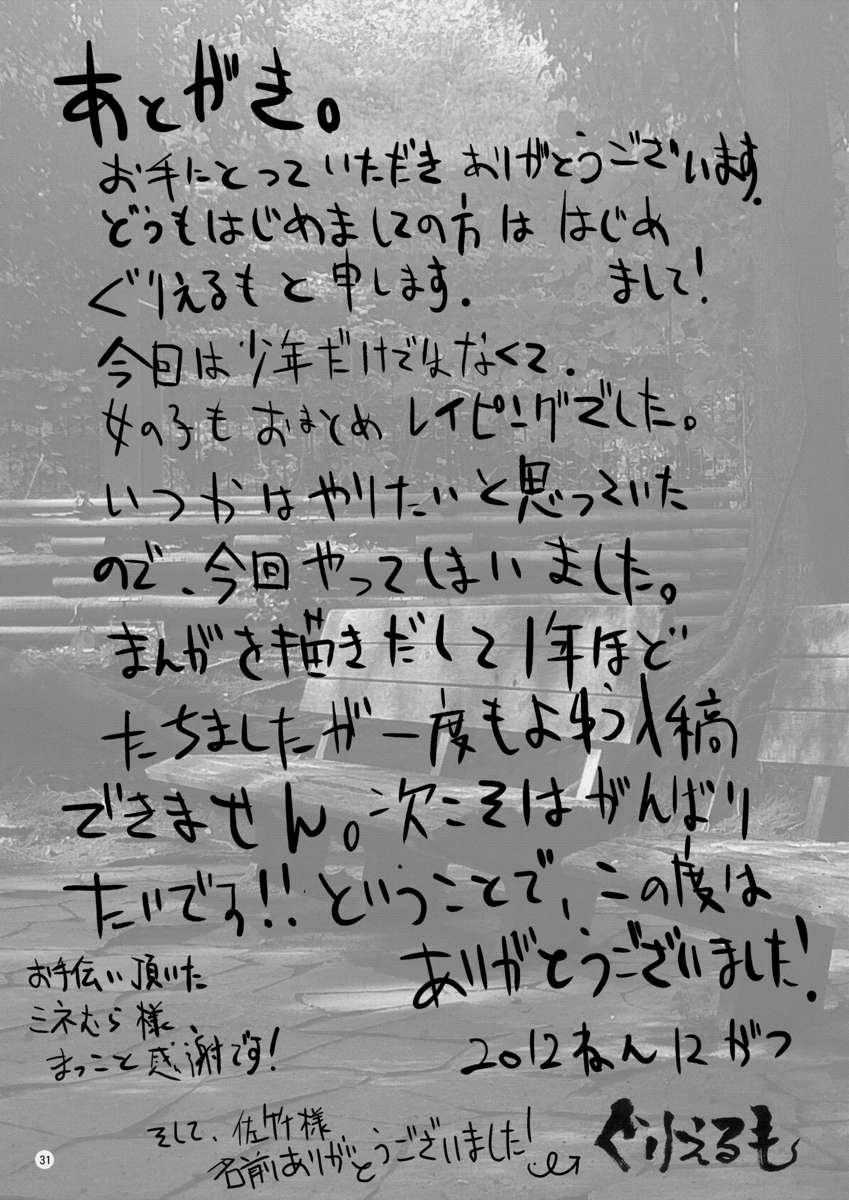 あとがき。
お手にとっていただき ありがとうございます.
どうもはじめましての方は はじめ
まして!
ぐりえるもと申します.
今回は少年だけではなくて.
女の子も おまとめ レイピングでした。
いつかはやりたいと思っていた
ので、今回やってしまいました。
まんがを描きだして1年ほど
たちましたが一度もよゆう入稿
できません。次こそはがんばり
たいです!!ということで、この度は
ありがとうございました!
お手伝い頂いた
ミネむら様、
まっこと感謝です!
2012ねんにがつ
そして、佐竹様
名前ありがとうございました!
ぐりえるも
31